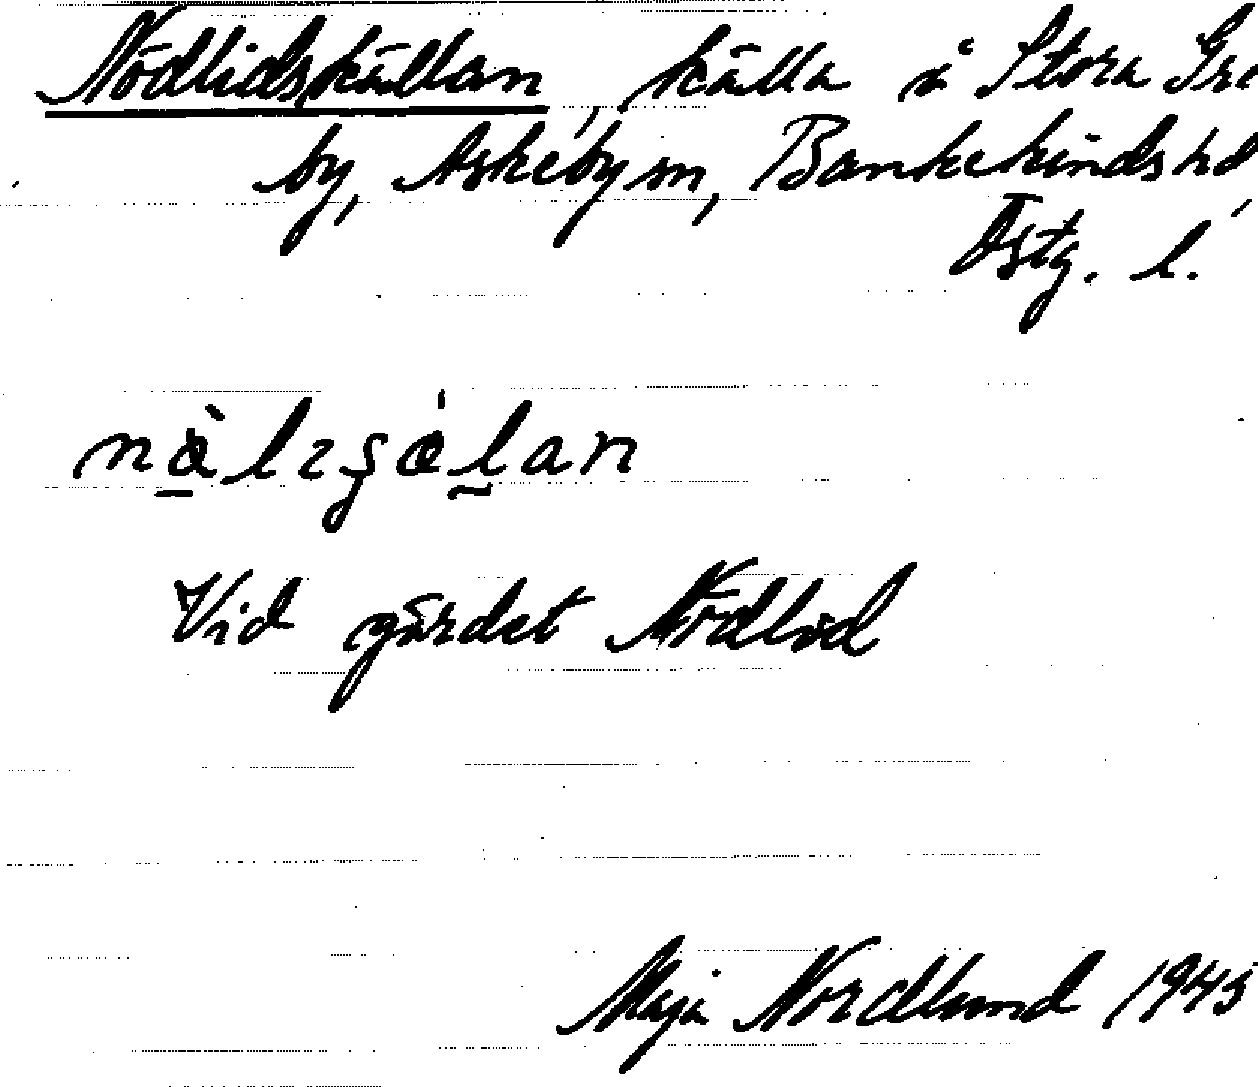 Nödlidskällan, källa i Stora Gre
by, Askeby sn, Bankekinds hd
Östg. l.
Vid gärdet Nödlid
Maja Nordlund 1945